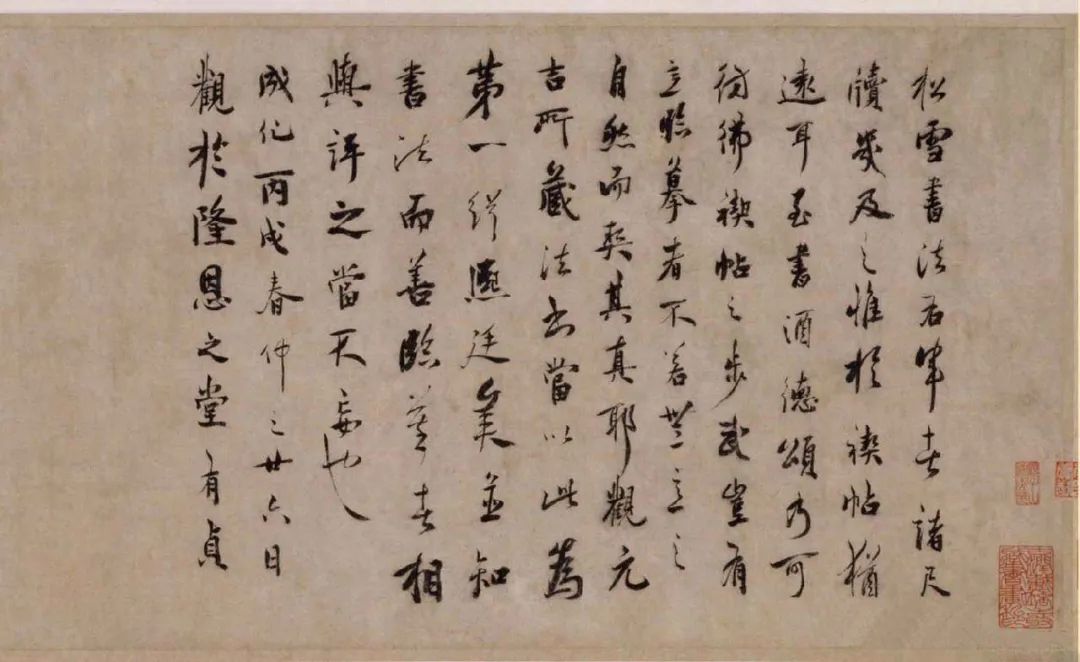 松雪書法右軍者諸尺
牘幾及之惟於禊帖猶
遠耳至書酒德頌乃可
彷彿禊帖之步武豈有
意臨摹者不若無意之
自然而契其真耶觀元
吉所藏法書當以此為
第一繆熙廷美並知
書法而善臨摹者相
與評之當不妄也
成化丙戌春仲之廿六日
觀於隆恩之堂有貞